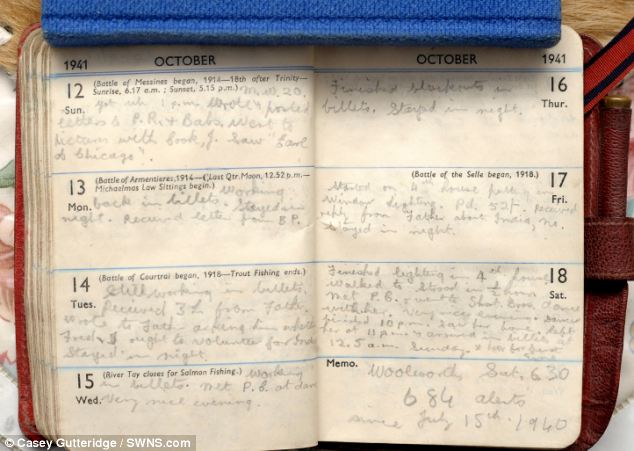 1941 OCTOBER
12 (Battle of Messines began, 1914—18th after Trinity—
Sun. Sunrise, 6.17 a.m.; Sunset, 5.15 p.m.)
1 p.m. Wrote & posted
letters to P.R. & Babs. Went to
pictures with Cook, J. Saw "Earl
of Chicago".
13 (Battle of Armentieres, 1914—☾Last Qtr. Moon, 12.52 p.m.—
Michaelmas Law Sittings begin.) Working
Mon. back in billets. Stayed in
night. Received letter from B.P.
14 (Battle of Courtrai began, 1918—Trout Fishing ends.)
Tues. Still working in billets.
Received from Father
wrote to Father asking him whether
Fred & I ought to volunteer for India
Stayed in night.
15 (River Tay closes for Salmon Fishing.) Working
in billets. Met P.B. at dance
Wed. Very nice evening.
OCTOBER 1941
Finished blackouts in 16
billets. Stayed in night. Thur.
(Battle of the Selle began, 1918.) 17
Started on 4th house putting in
window lighting. Pd. 52/-. Received Fri.
reply from Father about India, no.
Stayed in night.
Finished lighting in 4th house 18
Walked to Stood in hour Sat.
Met P.B. & went to dance
with her. Very nice evening. Dance
10 p.m. Saw her home. Left
her at 11 p.m. & arrived in billets at
12.5 a.m. Sunday.
Memo.
Woolworth Sat. 6.30
684 alerts
since July 15th 1940
© Casey Gutteridge / SWNS.com